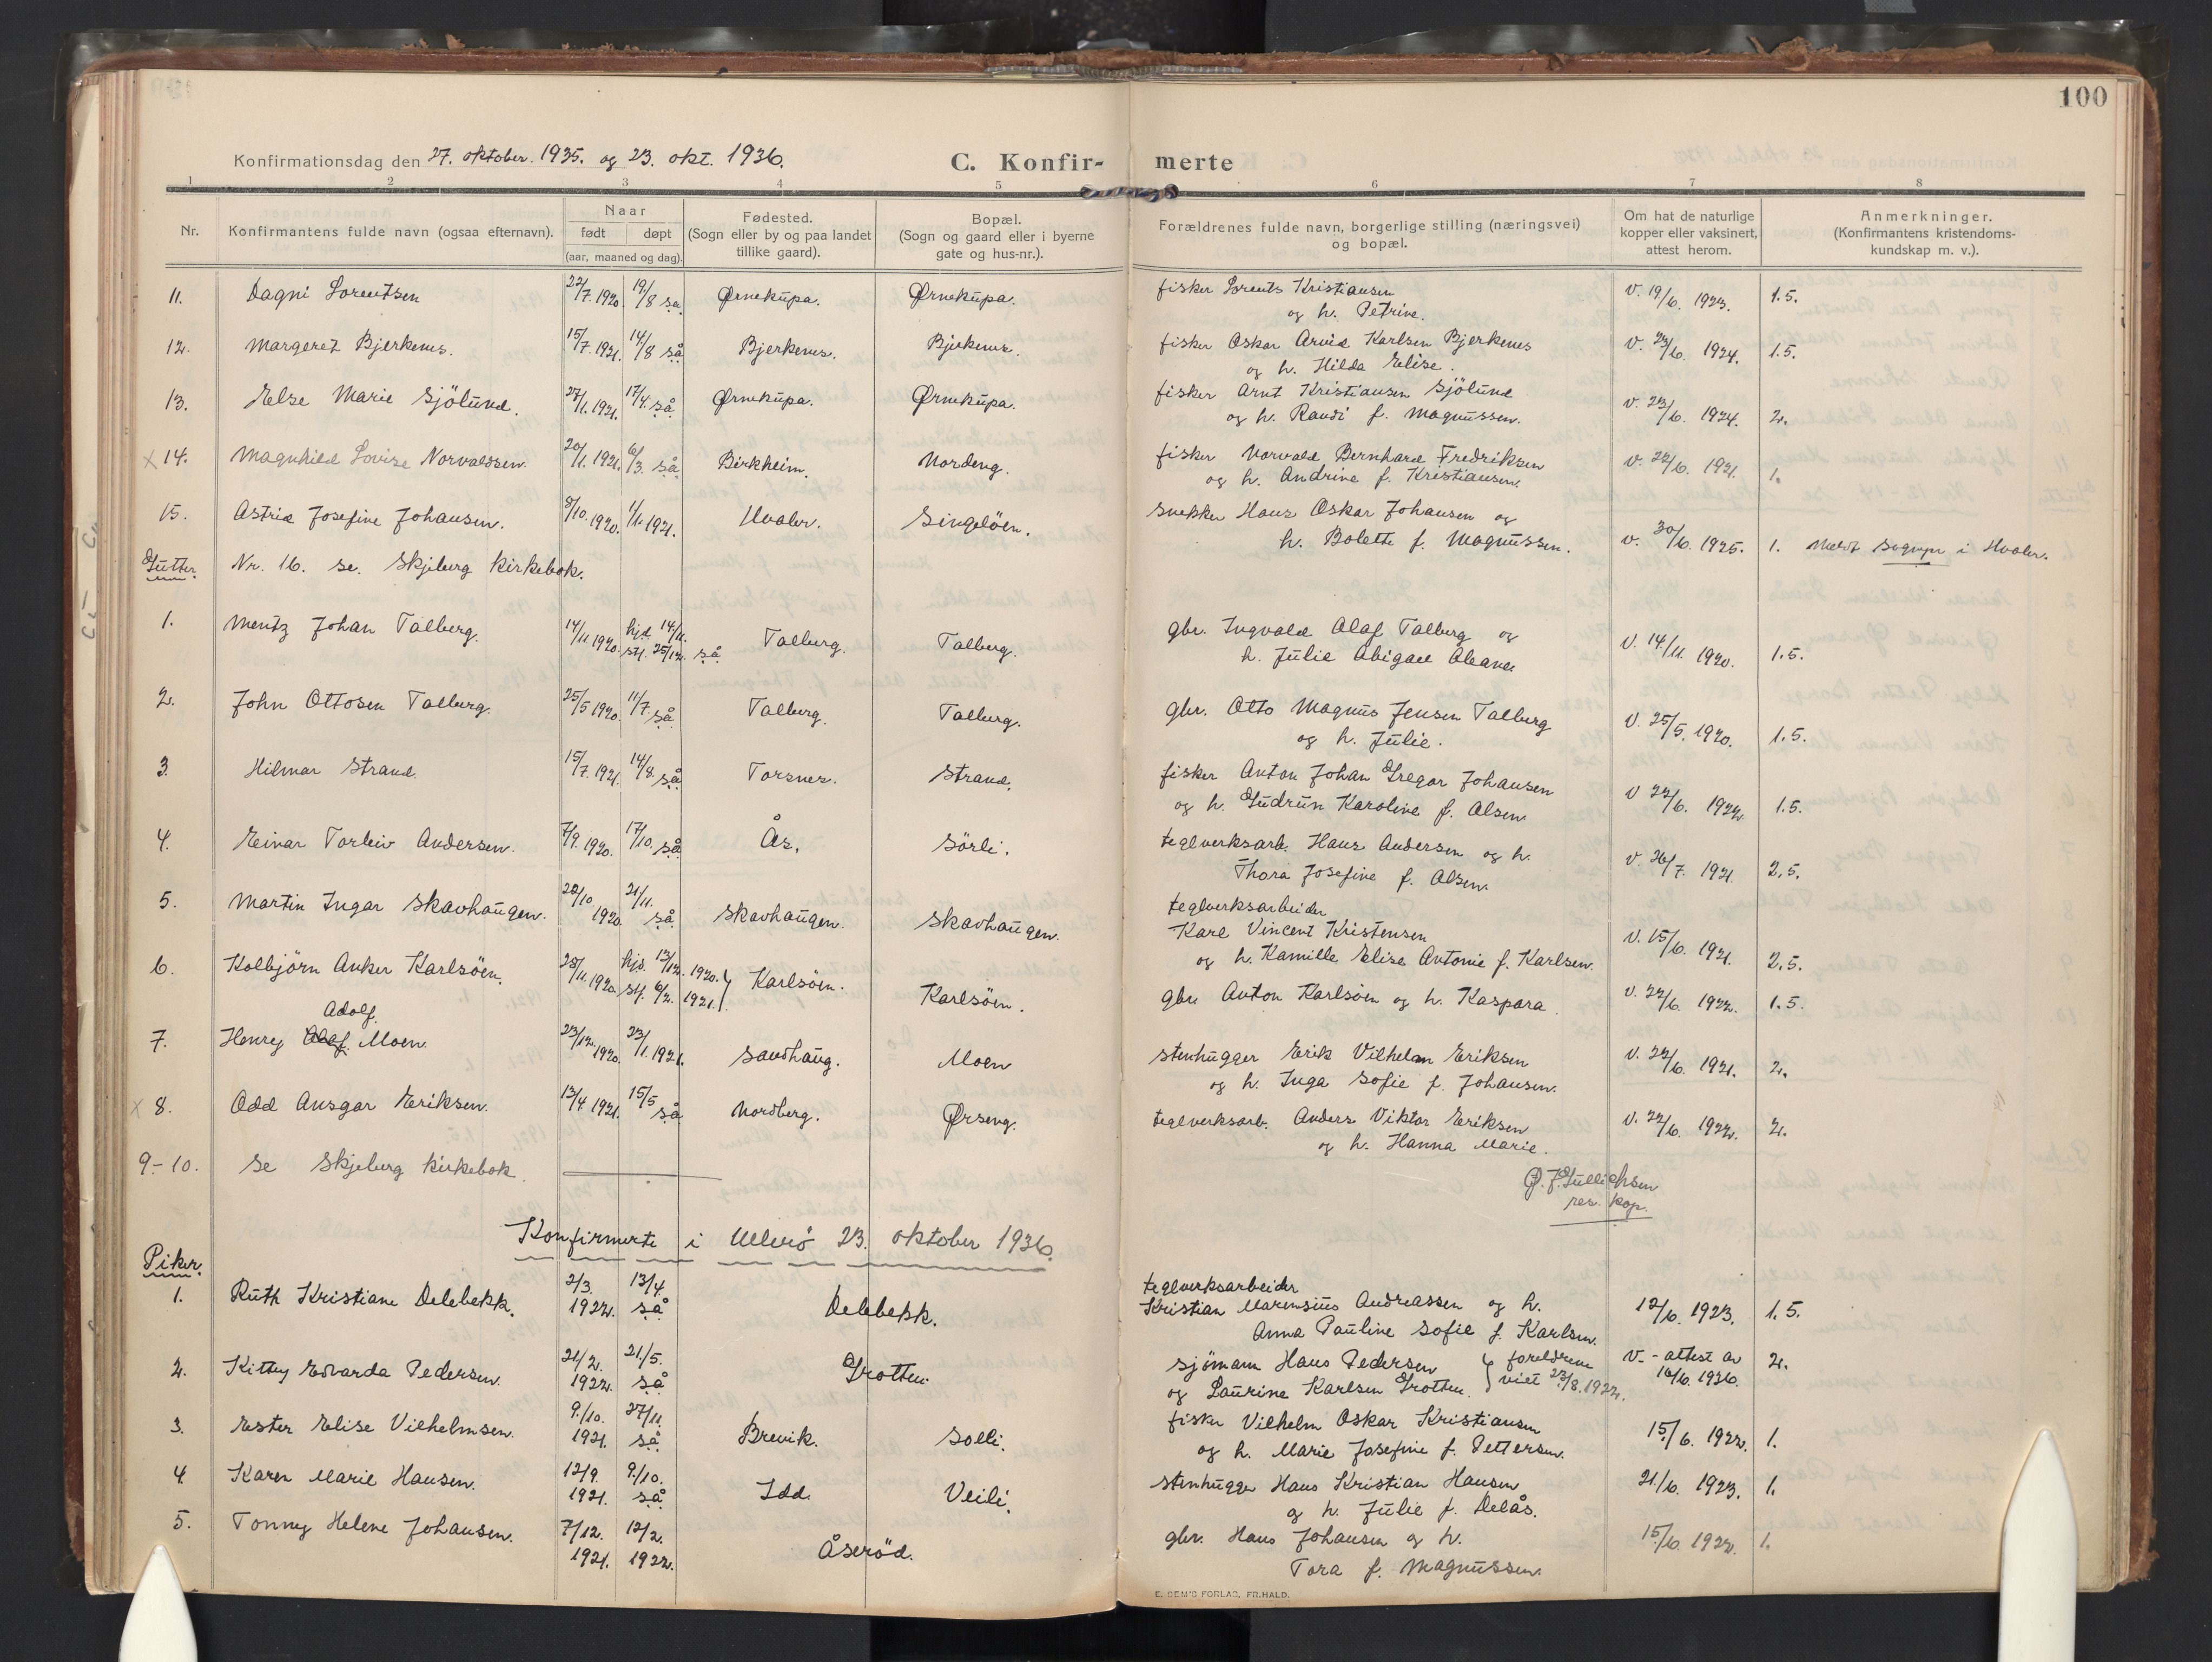 100
Konfirmationsdag den 27. oktober. 1935. og 23. okt. 1936.
C. Konfir- merte
1 2 3 4 5 6 7 8
Nr.
Konfirmantens fulde navn (ogsaa efternavn).
Naar
født døpt
(aar, maaned og dag).
Fødested.
(Sogn eller by og paa landet
tillike gaard).
Bopæl.
(Sogn og gaard eller i byerne
gate og hus-nr.).
Forældrenes fulde navn, borgerlige stilling (næringsvei)
og bopæl.
Om hat de naturlige
kopper eller vaksinert,
attest herom.
Anmerkninger.
(Konfirmantens kristendoms-
kundskap m. v.).
11. Dagni Lorentsen 22/7. 1920. 19/8 så. Ørnekupa. Ørnekupa. fisker Lorents Kristiansen v. 19/6. 1923. 1.5.
og h. Petrine.
12. Margeret Bjerkenes. 15/7. 1921. 14/8 så Bjerkenes. Bjerkenes. fisker Oskar Arvid Karlsen Bjerkenes v. 23/6. 1924. 1.5.
og h. Hilda Elise.
13. Else Marie Sjölund. 27/1. 1921. 17/4. så Ørnekupa. Ørnekupa. fisker Arnt Kristiansen Sjölund v. 23/6. 1924. 2.
og h. Randi f. Magnussen.
x 14. Magnhild Lovise Norvaldsen. 20/1. 1921. 6/3. så Birkheim. Nordeng. fisker Norvald Bernhard Fredriksen v. 22/6. 1921. 1.
og h. Andrine f. Kristiansen.
15. Astrid Josefine Johansen. 8/10. 1920. 1/1. 1921. Hvaler. Singelöen. snekker Hans Oskar Johansen og
h. Bolette f. Magnussen. v. 30/6. 1925. 1. Meldt sogнepr i Hvaler.
Gutter. Nr. 16. se. Skjeberg Kirkebok.
1. Mentz Johan Talberg. 14/11 1920. hjd. 14/11. Talberg. Talberg. gbr. Ingvald Olaf Talberg og v. 14/11. 1920. 1.5.
stf. 25/12. så h. Julie Abigael
2. John Ottosen Talberg. 25/5 1920. 11/7. så Talberg. Talberg. gbr. Otto Magnus Jensen Talberg v. 25/5. 1920. 1.5.
og h. Julie.
3. Hilmar Strand. 15/7. 1921. 14/8. så Torsnes. Strand. fisker Anton Johan Gregor Johansen v 22/6. 1922. 1.5.
og h. Gudrun Karoline f. Olsen.
4. Einar Torleiv Andersen. 7/9. 1920. 17/10. så Ås. Sörli. teglverksarb. Hans Andersen og h. v. 26/7. 1921. 2.5.
Thora Josefine f. Olsen.
5. Martin Ingar Skavhaugen. 20/10 1920. 21/11. så Skavhaugen. Skavhaugen. teglverksarbeider
Karl Vincent Kristensen v. 15/6. 1921. 2.5.
og h. Kamille Elise Antonie f. Karlsen.
6. Kolbjörn Anker Karlsöen. 28/11. 1920. hjd. 13/12. 1920. Karlsöen. Karlsöen. gbr. Anton Karlsöen og h. Kaspara. v. 22/6. 1922. 1.5.
stf. 6/2. 1921.
Adolf.
7. Henry Olaf. Moen. 23/12. 1920. 23/1. 1921. Sandhaug. Moen stenhugger Erik Vilhelm Eriksen v. 22/6. 1921. 2.
og h. Inga Sofie f. Johansen.
x 8. Odd Ansgar Eriksen. 13/4 1921. 15/5 så Nordberg. Ørseng. teglverksarb. Anders Viktor Eriksen v. 22/6. 1922. 2.
og h. Hanna Marie.
9-10. se Skjeberg kirkebok.
Ø. J. Gullichsen
res. kap.
Konfirmerte i Ullerö 23. oktober 1936.
Piker.
1. Ruth Kristiane Delebekk. 2/3. 1922. 13/4. så Delebekk. teglverksarbeider
Kristian Marensius Andreassen og h. 12/6. 1923. 1.5.
Anna Pauline Sofie f. Karlsen.
2. Kitty Edvarda Pedersen. 21/2. 1922. 21/5. så Grotten. sjömann Hans Pedersen } foreldrene v. - attest av 2.
og Laurine Karlsen Grotten. viet 23/8. 1922. 16/6. 1936.
3. Ester Elise Vilhelmsen. 9/10. 1921. 27/11. så Brevik. Solli. fisker Vilhelm Oskar Kristiansen 15/6. 1922. 1.
og h. Marie Josefine f. Pettersen.
4. Karen Marie Hansen. 12/9. 1921. 9/10. så Idd. Veili. stenhugger Hans Kristian Hansen 21/6. 1923. 1.
og h. Julie f. Delås.
5. Tonny Helene Johansen. 7/12. 1921. 12/2. 1922. Åseröd. gbr. Hans Johansen og h. 15/6. 1922. 1.
Tora f. Magnussen.
E. SEM'S FORLAG, FR.HALD.